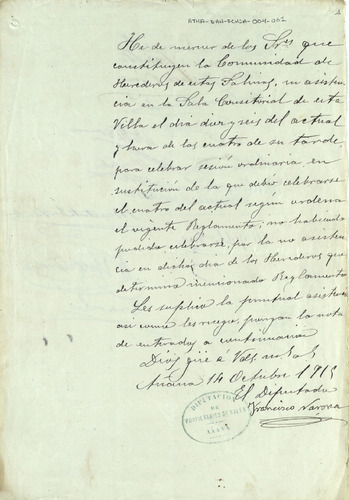 ATHA-DAH-ECHSA-004-001
1
He de merecer de los Sres que
constituyen la Comunidad de
Herederos de estas Salinas, su asisten
cia en la Sala Consistorial de esta
Villa el dia diez y seis del actual
y hora de las cuatro de su tarde
para celebrar sesión ordinaria en
sustitución de la que debió celebrarse
el cuatro del actual segun ordena
el vigente Reglamento, no habiendo
podido celebrarse, por la no asisten
cia en dicho dia de los Herederos que
determina mencionado Reglamento
Les suplico la puntual asistencia
asi como les ruego, pongan la nota
de enterados a continuación
Dios gũe a Vds
Añana 14 Octubre 1913
El Diputado
Francisco Varona
DIPUTACION
DE
ALAVA